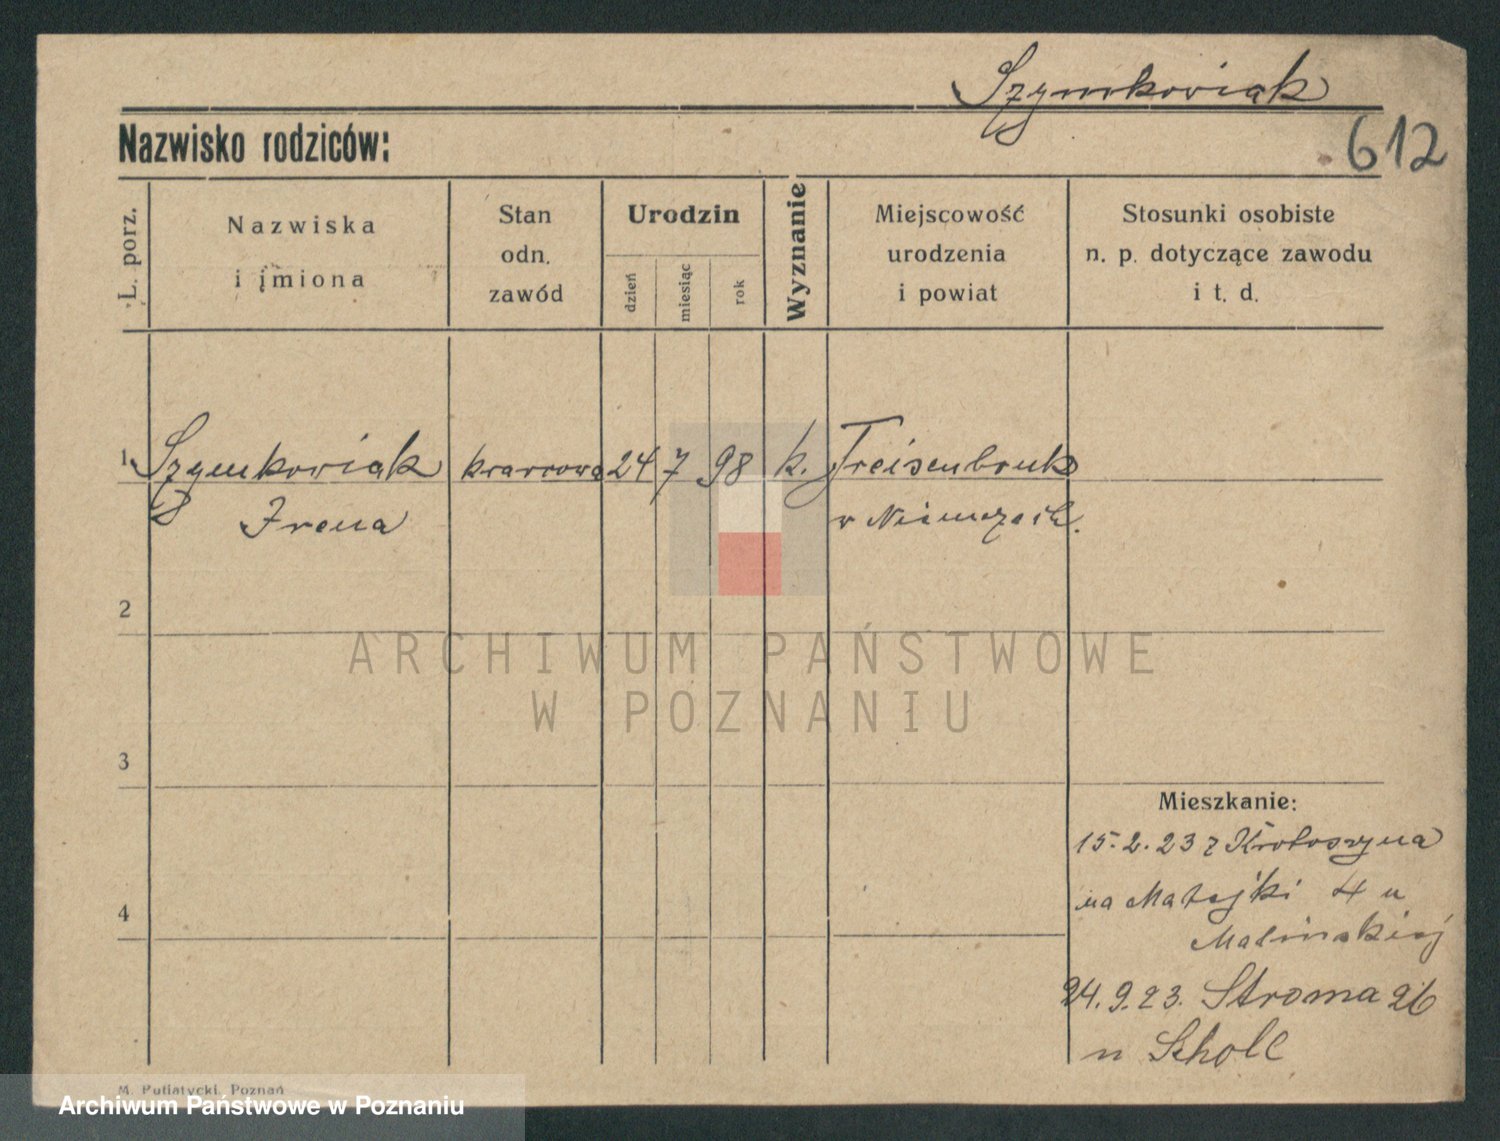 Szymkowiak
Nazwisko rodziców:
612
L. porz.
Nazwiska
i imiona
Stan
odn.
zawód
Urodzin
dzień
miesiąc
rok
Wyznanie
Miejscowość
urodzenia
i powiat
Stosunki osobiste
n. p. dotyczące zawodu
i t. d.
1 Szymkowiak krawcowa 24 7 98 k. Treisenbruk
Irena w Niemczech.
2
3
4
Mieszkanie:
15.2.23 z Krotoszyna
na Matejki 4 u
Malińskiej
24.9.23. Stroma 26
u Scholl
ARCHIWUM PAŃSTWOWE
W POZNANIU
M. Putiatycki, Poznań
Archiwum Państwowe w Poznaniu